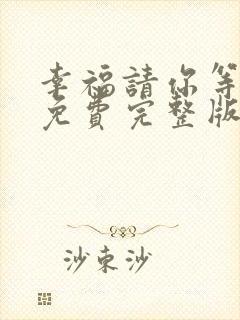 幸福請你等
免費完整版
沙束沙